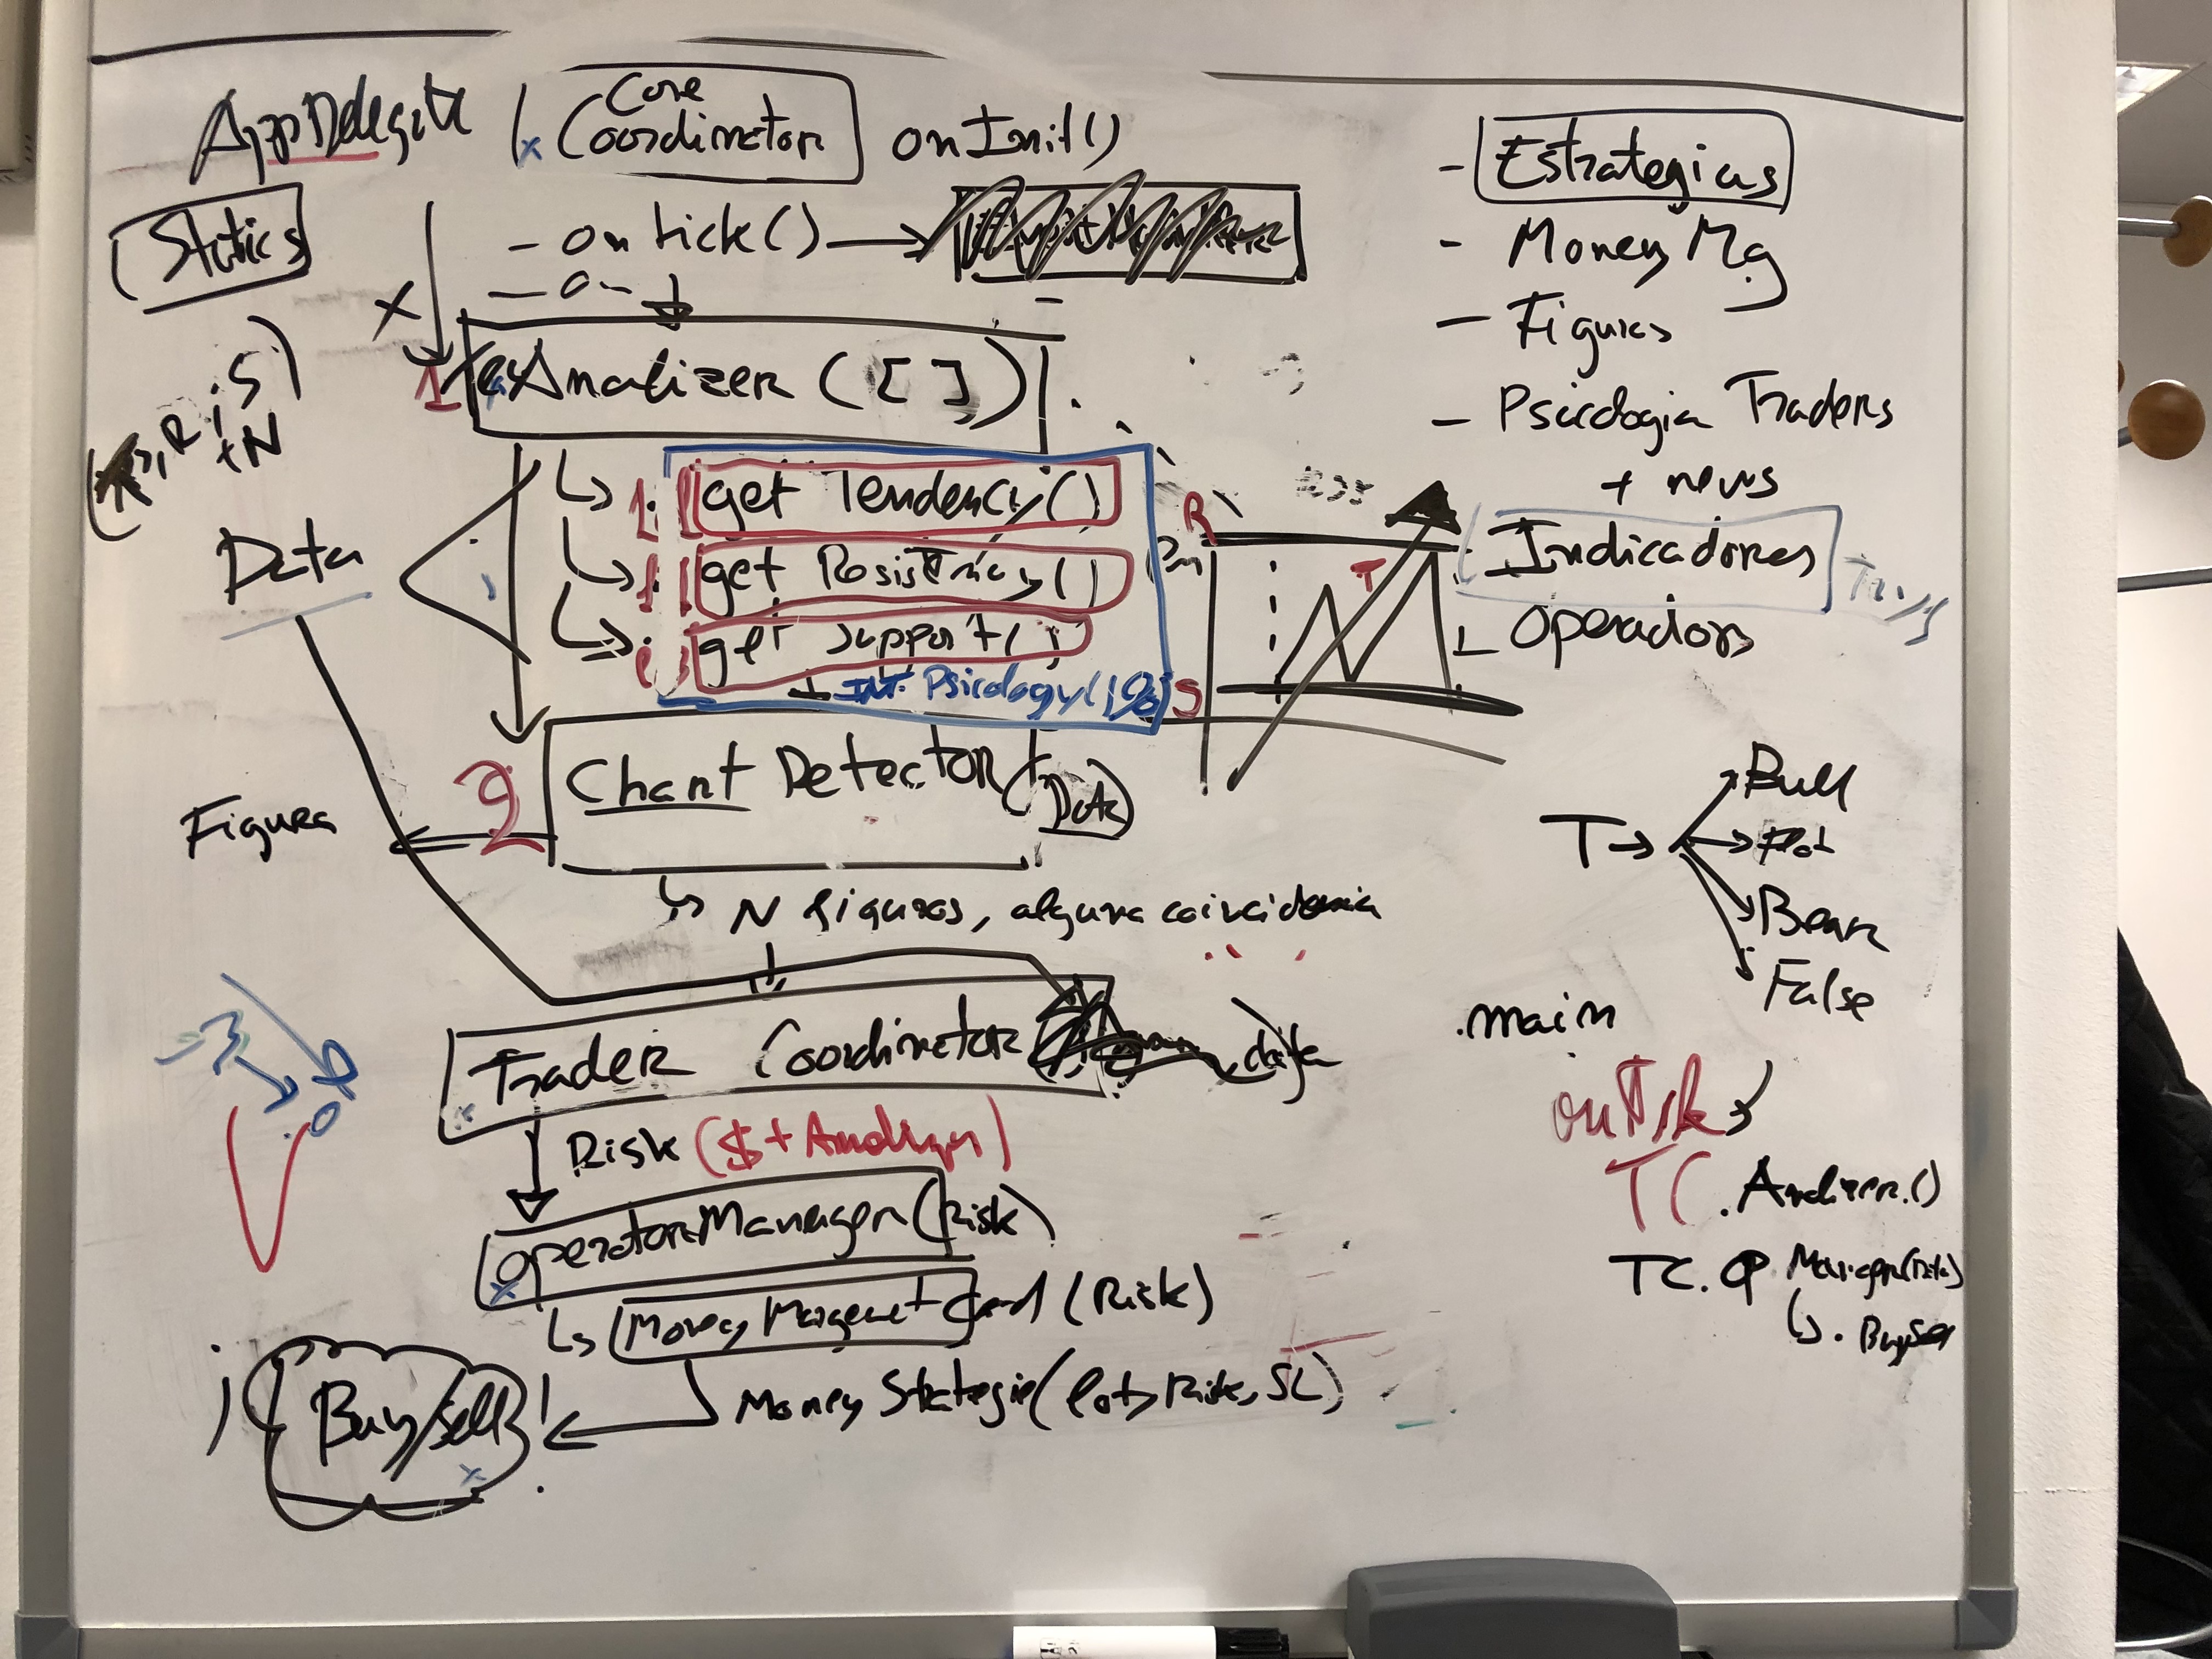 AppDelegate
Core
Coordinator
onInit()
Statics
- on tick()
1
Analizer ([])
, R, S)
+N
Data
1. get Tendency()
get Resistency()
get Support()
+ INT. Psicology()
R
T
S
2
Chart Detector (Data)
Figura
N figuras, alguna coincidencia
Trader Coordinator
data
Risk ($ + Analizer)
operatorManager(Risk)
Money Margenet Card (Risk)
Money Strategie(lots, Risk, SL)
Buy/sell
- Estrategias
- Money Mg
- Figuras
- Psicologia Traders
+ news
- Indicadores
Operadors
T → Bull
Flat
Bear
False
.main
onTick
TC .Analizer.()
TC. OP Manager(Risk)
. Buy/Sell